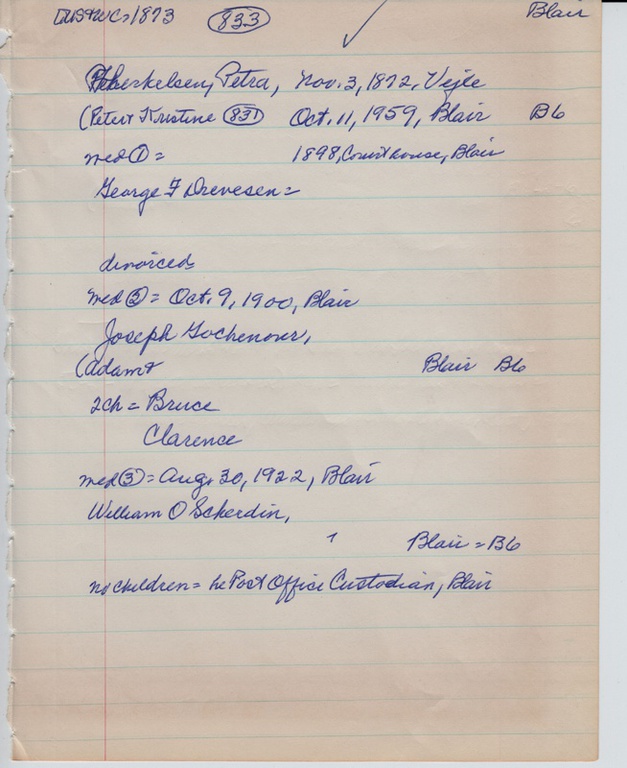 1873 833 Blair
Petra, Nov. 3, 1872, Vejle
(Peter & Kristine 831 Oct. 11, 1959, Blair B6
med ① = 1898, Courthouse, Blair
George F Drevesen =
divorced
med ② = Oct. 9, 1900, Blair
Joseph Gochenour,
(Adam &
Blair B6
2ch = Bruce
Clarence
med ③ = Aug. 30, 1922, Blair
William O Scherdin,
Blair = B6
no children = he Post Office Custodian, Blair